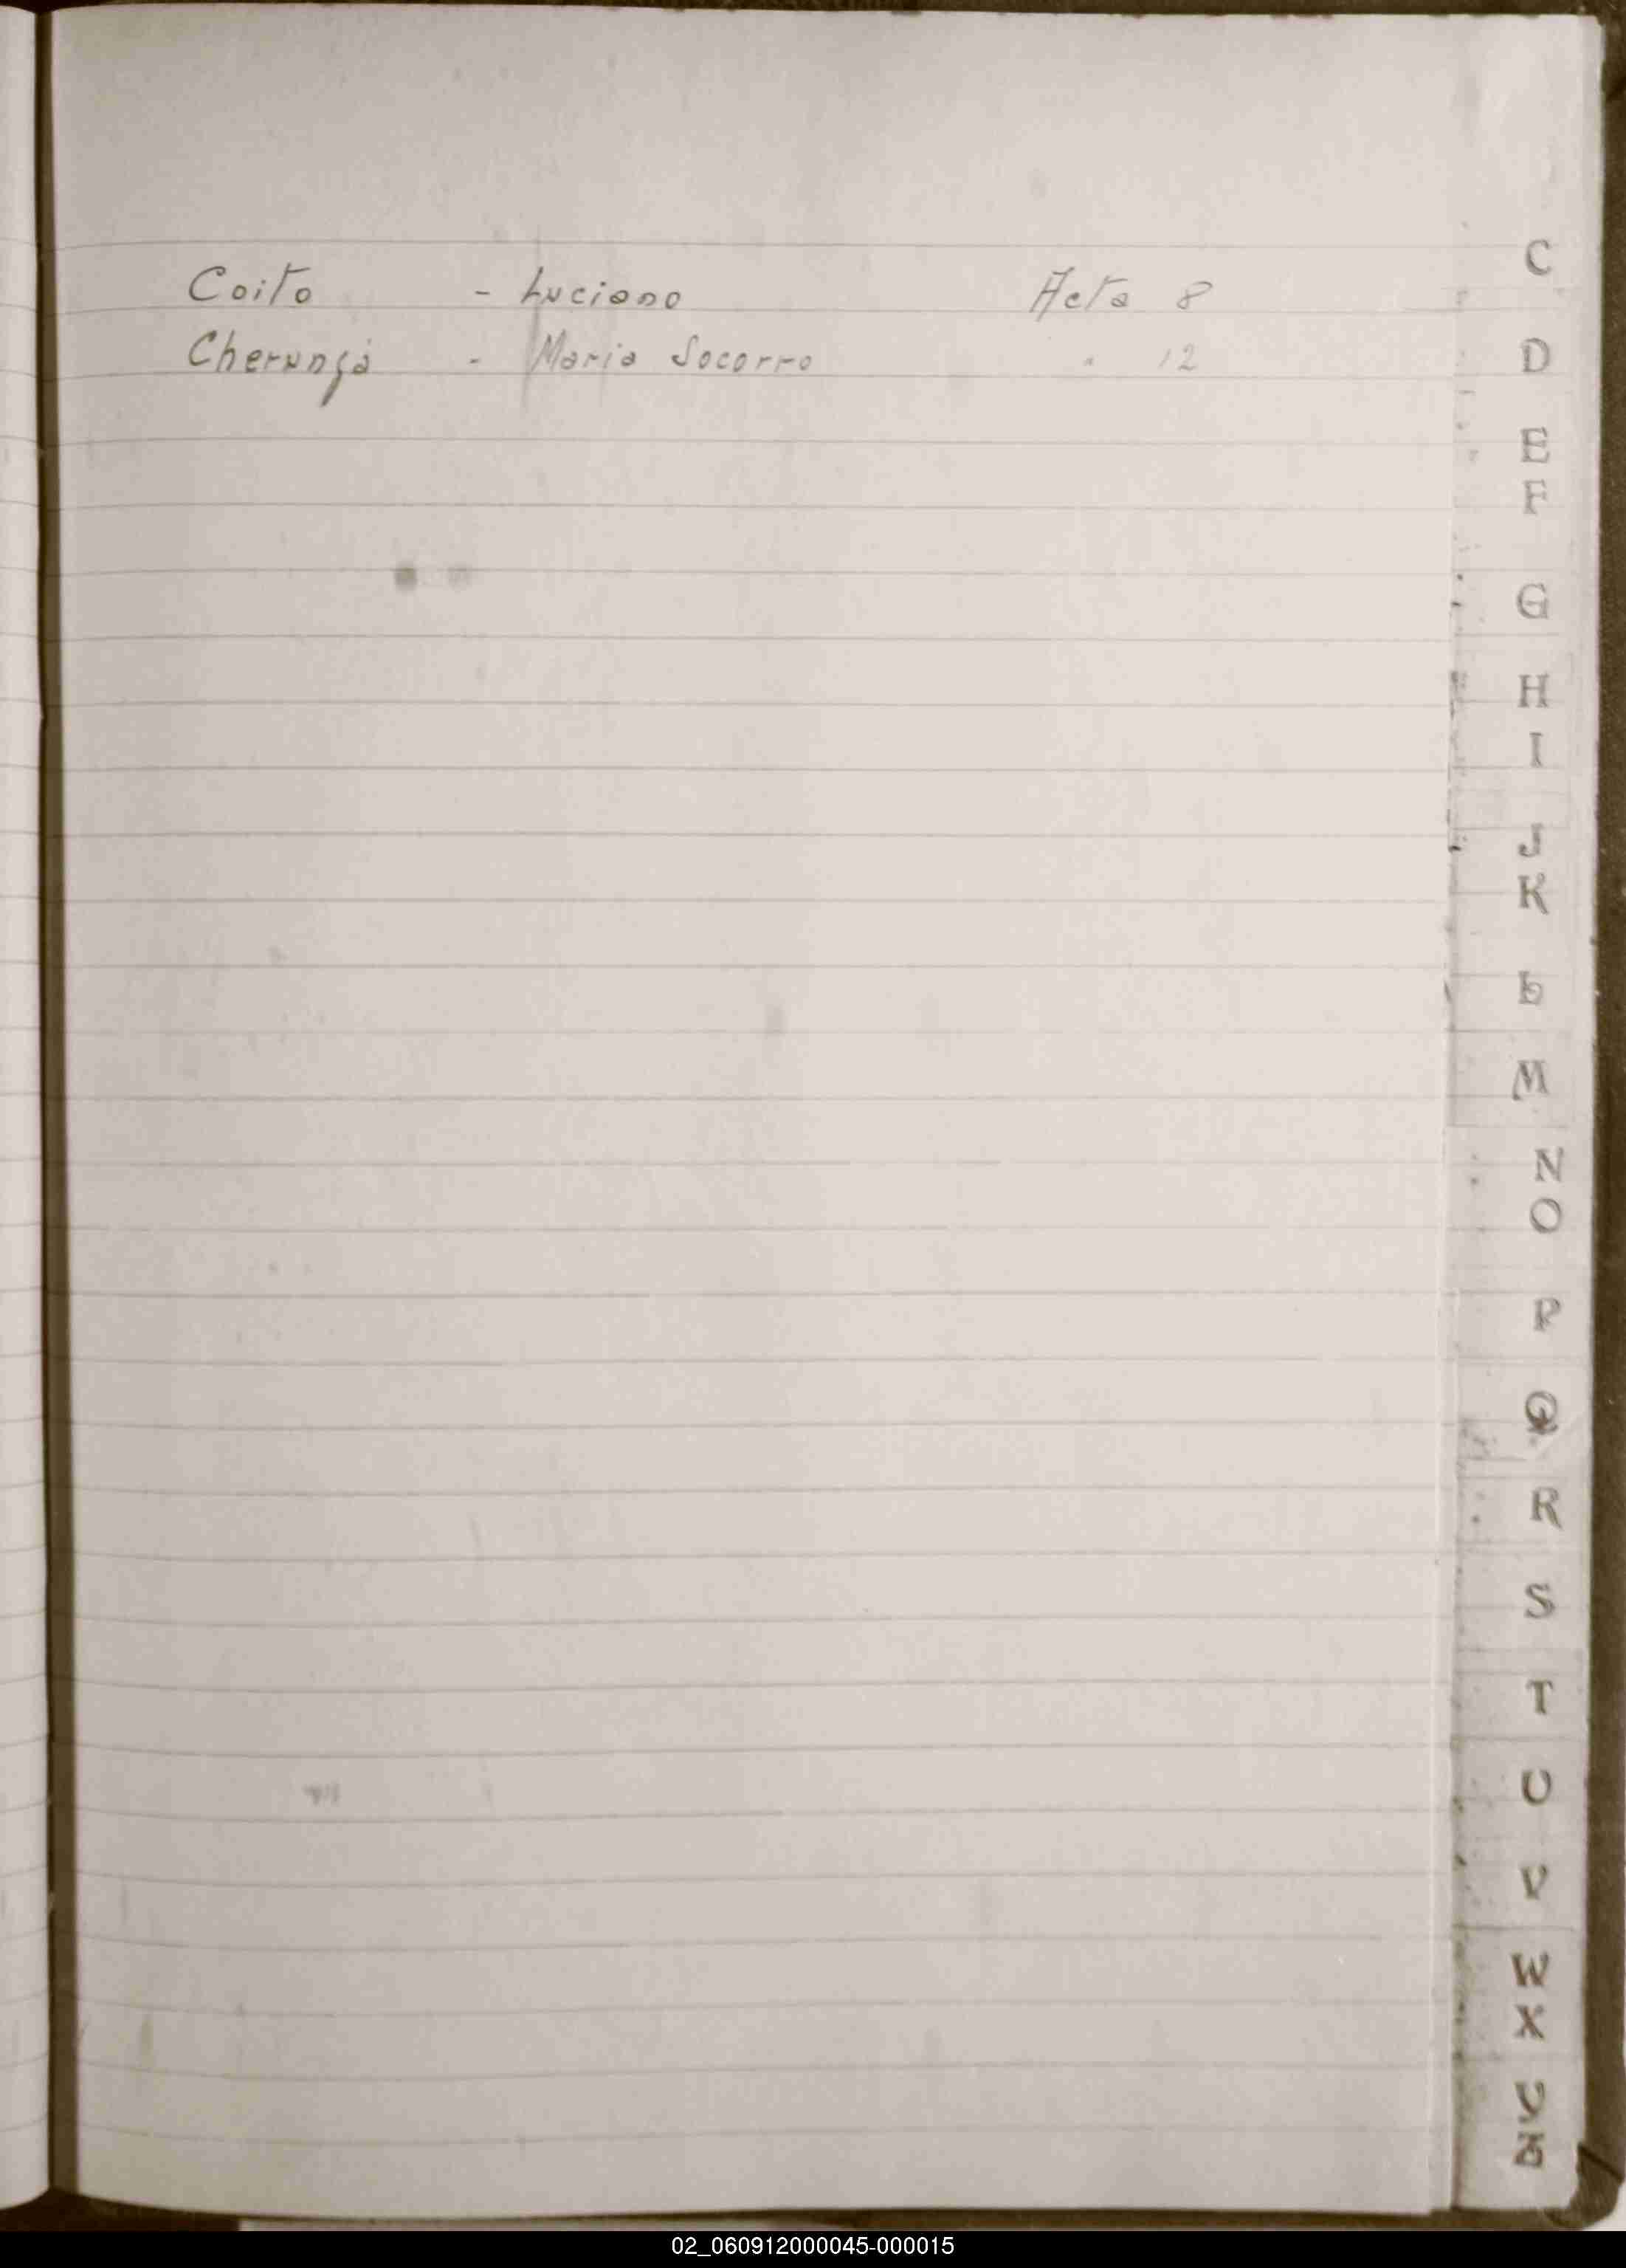 Coito - Luciano Acta 8
- Maria Socorro " 12
C
D
E
F
G
H
I
J
K
L
M
N
O
P
Q
R
S
T
U
V
W
X
02_060912000045-000015